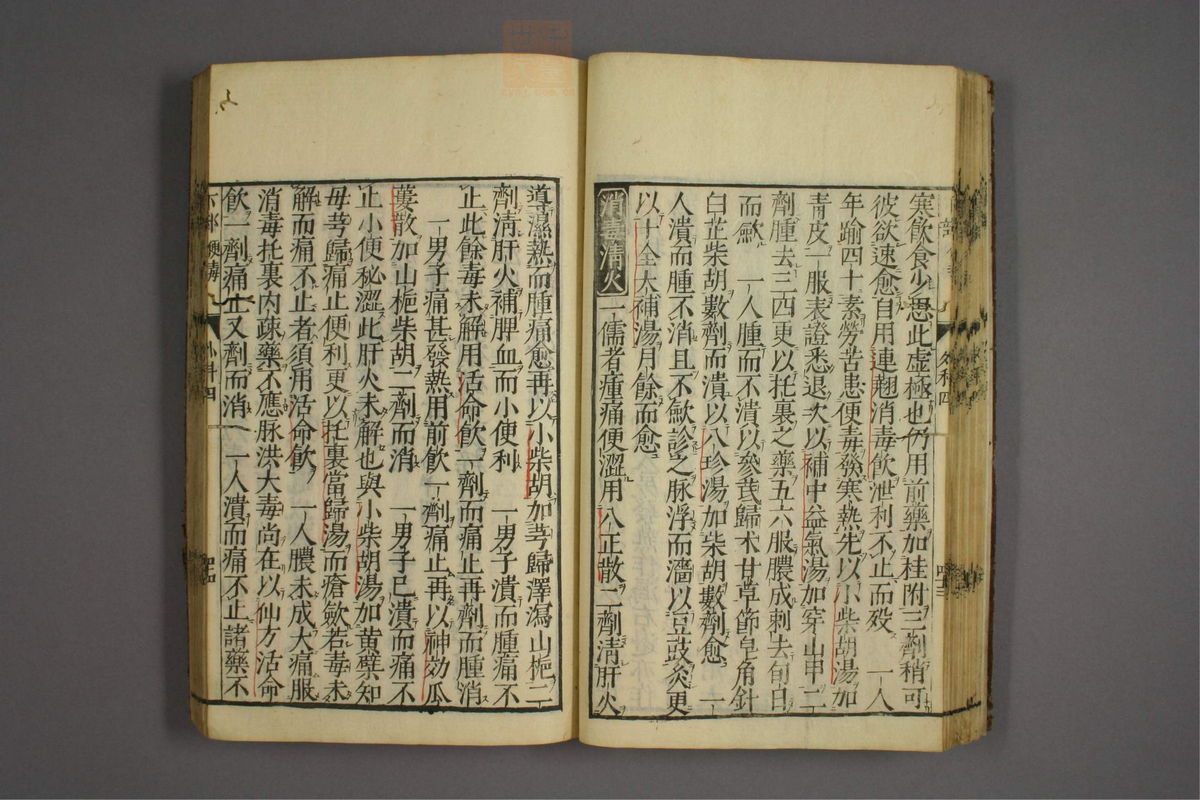 寒飲食少思此虛極也仍用前藥加桂附三劑稍可
彼欲速愈自用連翹消毒飲泄利不止而殁　一人
年踰四十素勞苦患便毒發寒熱先以小柴胡湯加
青皮一服表證悉退次以補中益氣湯加穿山甲二
劑腫去三四更以托裏之藥五六服膿成刺去旬日
而歛　一人腫而不潰以參芪歸术甘草節皂角針
白芷柴胡數劑而潰以八珍湯加柴胡數劑愈　一
人潰而腫不消且不歛診之脉浮而濇以豆豉灸更
以十全大補湯月餘而愈
消毒清火　一儒者腫痛便澀用八正散二劑清肝火
導濕熱而腫痛愈再以小柴胡加芎歸澤瀉山梔二
劑清肝火補脾血而小便利　一男子潰而腫痛不
止此餘毒未解用活命飲一劑而痛止再劑而腫消
一男子痛甚發熱用前飲一劑痛止再以神効瓜
蔞散加山梔柴胡二劑而消　一男子已潰而痛不
止小便秘澀此肝火未解也與小柴胡湯加黄蘗知
母芎歸痛止便利更以托裏當歸湯而瘡歛若毒未
解而痛不止者須用活命飲　一人膿未成大痛服
消毒托裏内疎藥不應脉洪大毒尚在以仙方活命
飲一劑痛止又劑而消　一人潰而痛不止諸藥不
下部　便毒　外科四
外科四